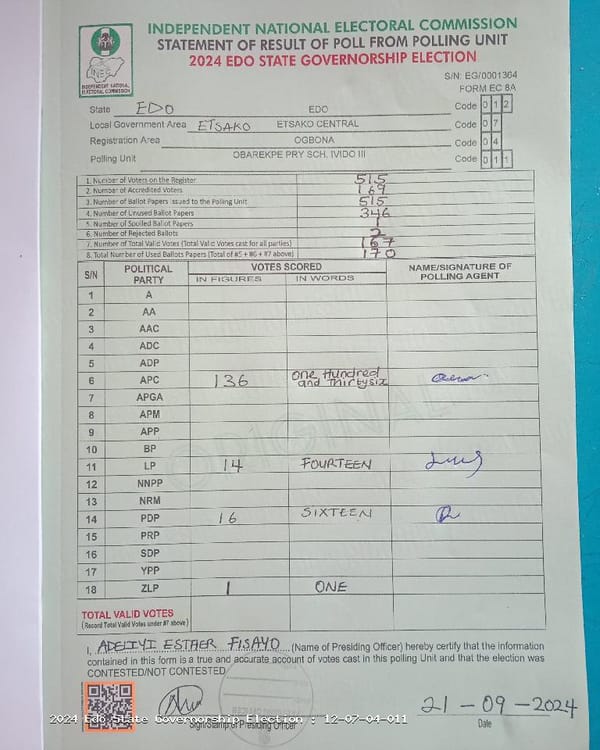 INDEPENDENT NATIONAL ELECTORAL COMMISSION
STATEMENT OF RESULT OF POLL FROM POLLING UNIT
2024 EDO STATE GOVERNORSHIP ELECTION
INEC
INDEPENDENT NATIONAL ELECTORAL COMMISSION
S/N: EG/0001304
FORM EC 8A
State EDO EDO Code 0 1 2
Local Government Area ETSAKO ETSAKO CENTRAL Code 0 7
Registration Area OGBONA Code 0 4
Polling Unit OBAREKPE PRY SCH. IVIDO III Code 0 1 1
1. Number of Voters on the Register 515
2. Number of Accredited Voters 169
3. Number of Ballot Papers Issued to the Polling Unit 515
4. Number of Unused Ballot Papers 346
5. Number of Spoiled Ballot Papers 1
6. Number of Rejected Ballots 2
7. Number of Total Valid Votes (Total Valid Votes cast for all parties) 167
8. Total Number of Used Ballots Papers (Total of #5 + #6 + #7 above) 170
S/N POLITICAL PARTY VOTES SCORED NAME/SIGNATURE OF POLLING AGENT
IN FIGURES IN WORDS
1 A
2 AA
3 AAC
4 ADC
5 ADP
6 APC 136 One Hundred and Thirtysix
7 APGA
8 APM
9 APP
10 BP
11 LP 14 FOURTEEN
12 NNPP
13 NRM
14 PDP 16 SIXTEEN
15 PRP
16 SDP
17 YPP
18 ZLP 1 ONE
TOTAL VALID VOTES
(Record Total Valid Votes under #7 above)
ORIGINAL
I, ADELIYI ESTHER FISAYO (Name of Presiding Officer) hereby certify that the information
contained in this form is a true and accurate account of votes cast in this polling Unit and that the election was
CONTESTED/NOT CONTESTED
21-09-2024
Sign/Stamp of Presiding Officer Date
2024 Edo State Governorship Election : 12-07-04-011